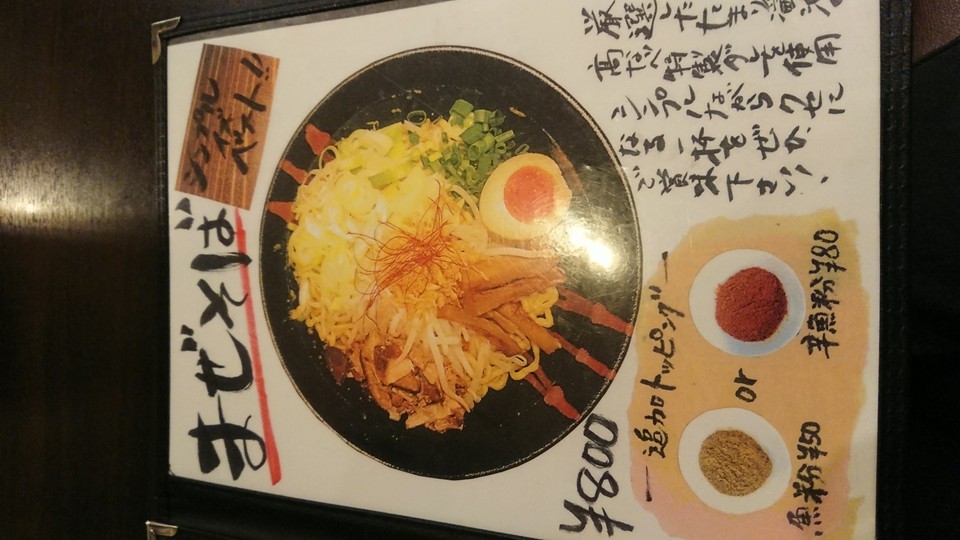 シンプル
イズ
ベスト!!
まぜそば
¥800
厳選したたまり醤油と
高だし特製ダレを使用
シンプルながらクセに
なる一杯をぜひ、
ご賞味下さい、
追加トッピング
魚粉¥50
or
辛魚粉¥80